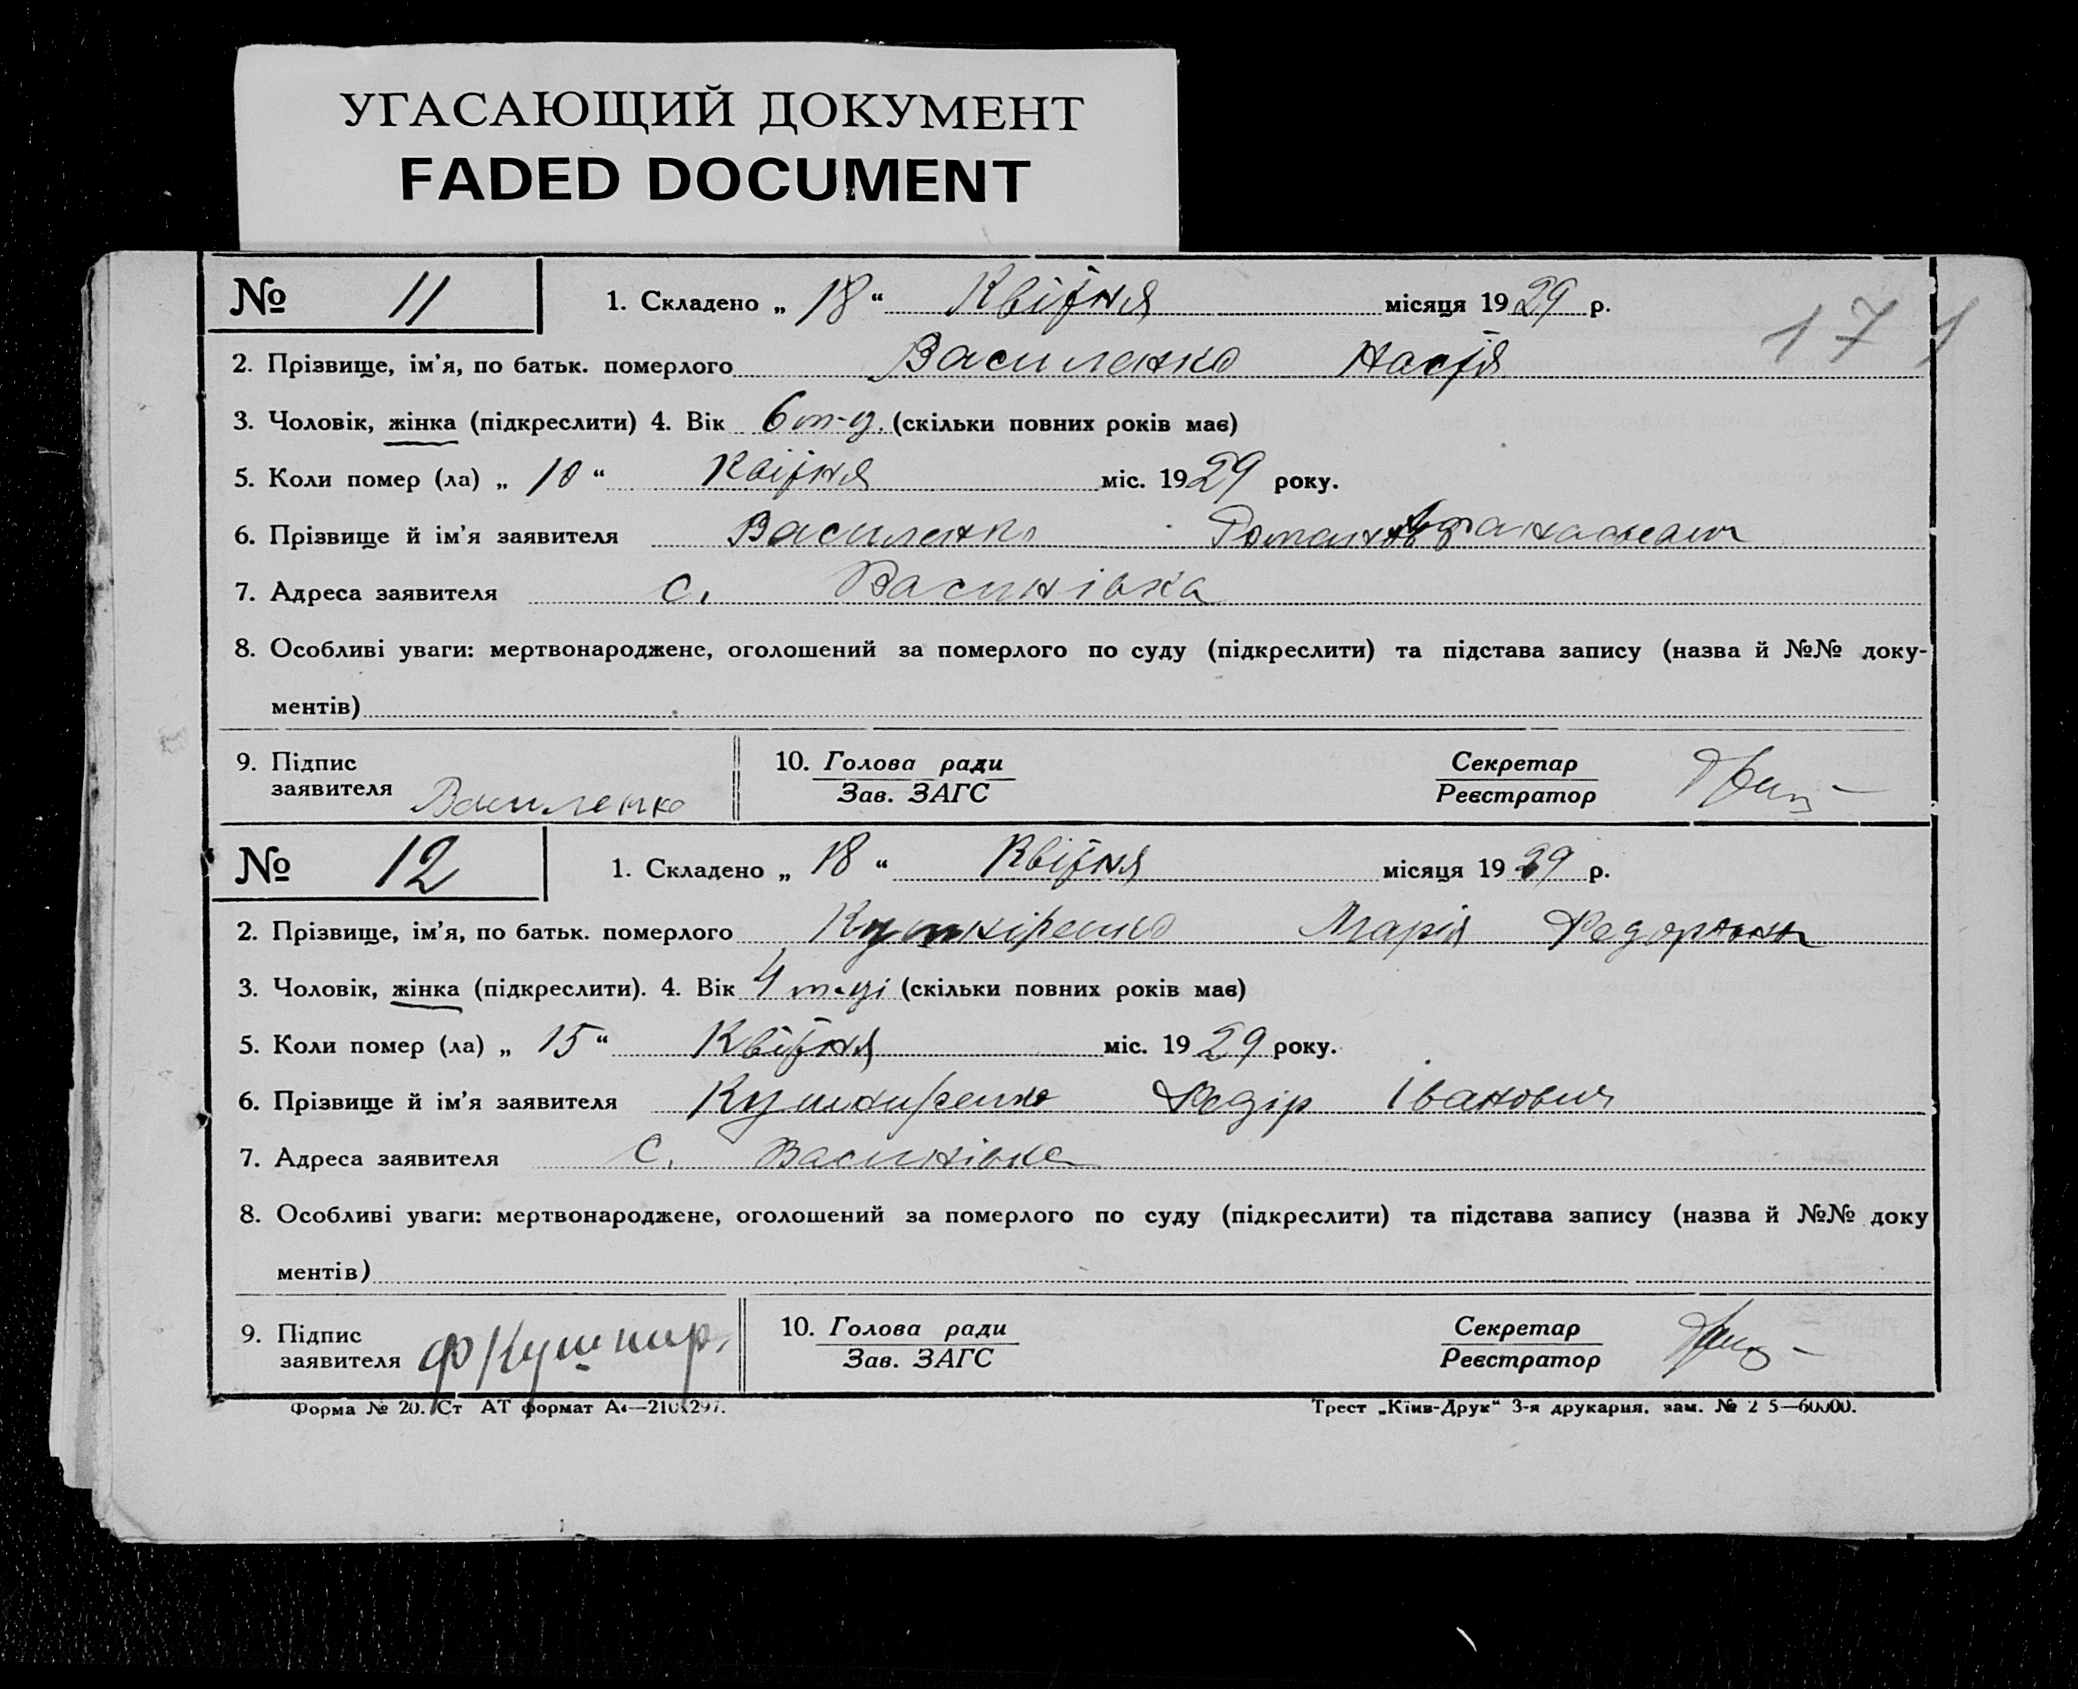 УГАСАЮЩИЙ ДОКУМЕНТ
FADED DOCUMENT
№ 11 1. Складено „ 18 “ Квітня місяця 1929 р.
171
2. Прізвище, ім’я, по батьк. померлого Василенко Настя
3. Чоловік, жінка (підкреслити) 4. Вік 6 т-д. (скільки повних років має)
5. Коли помер (ла) „ 10 “ Квітня міс. 1929 року.
6. Прізвище й ім’я заявителя Василенко Роман
7. Адреса заявителя с. Васинівка
8. Особливі уваги: мертвонароджене, оголошений за померлого по суду (підкреслити) та підстава запису (назва й №№ доку-
ментів)
9. Підпис заявителя Василенко 10. Голова ради Зав. ЗАГС Секретар Реєстратор
№ 12 1. Складено „ 18 “ Квітня місяця 1929 р.
2. Прізвище, ім’я, по батьк. померлого Кушніренко Марія Федоровна
3. Чоловік, жінка (підкреслити). 4. Вік 4 (скільки повних років має)
5. Коли помер (ла) „ 15 “ Квітня міс. 1929 року.
6. Прізвище й ім’я заявителя Кушниренко Федір Іванович
7. Адреса заявителя с. Васинівка
8. Особливі уваги: мертвонароджене, оголошений за померлого по суду (підкреслити) та підстава запису (назва й №№ доку
ментів)
9. Підпис заявителя Ф Кушнир. 10. Голова ради Зав. ЗАГС Секретар Реєстратор
Форма № 20. Ст АТ формат А4—210х297. Трест „Київ-Друк“ 3-я друкарня, зам. № 2 5—60000.